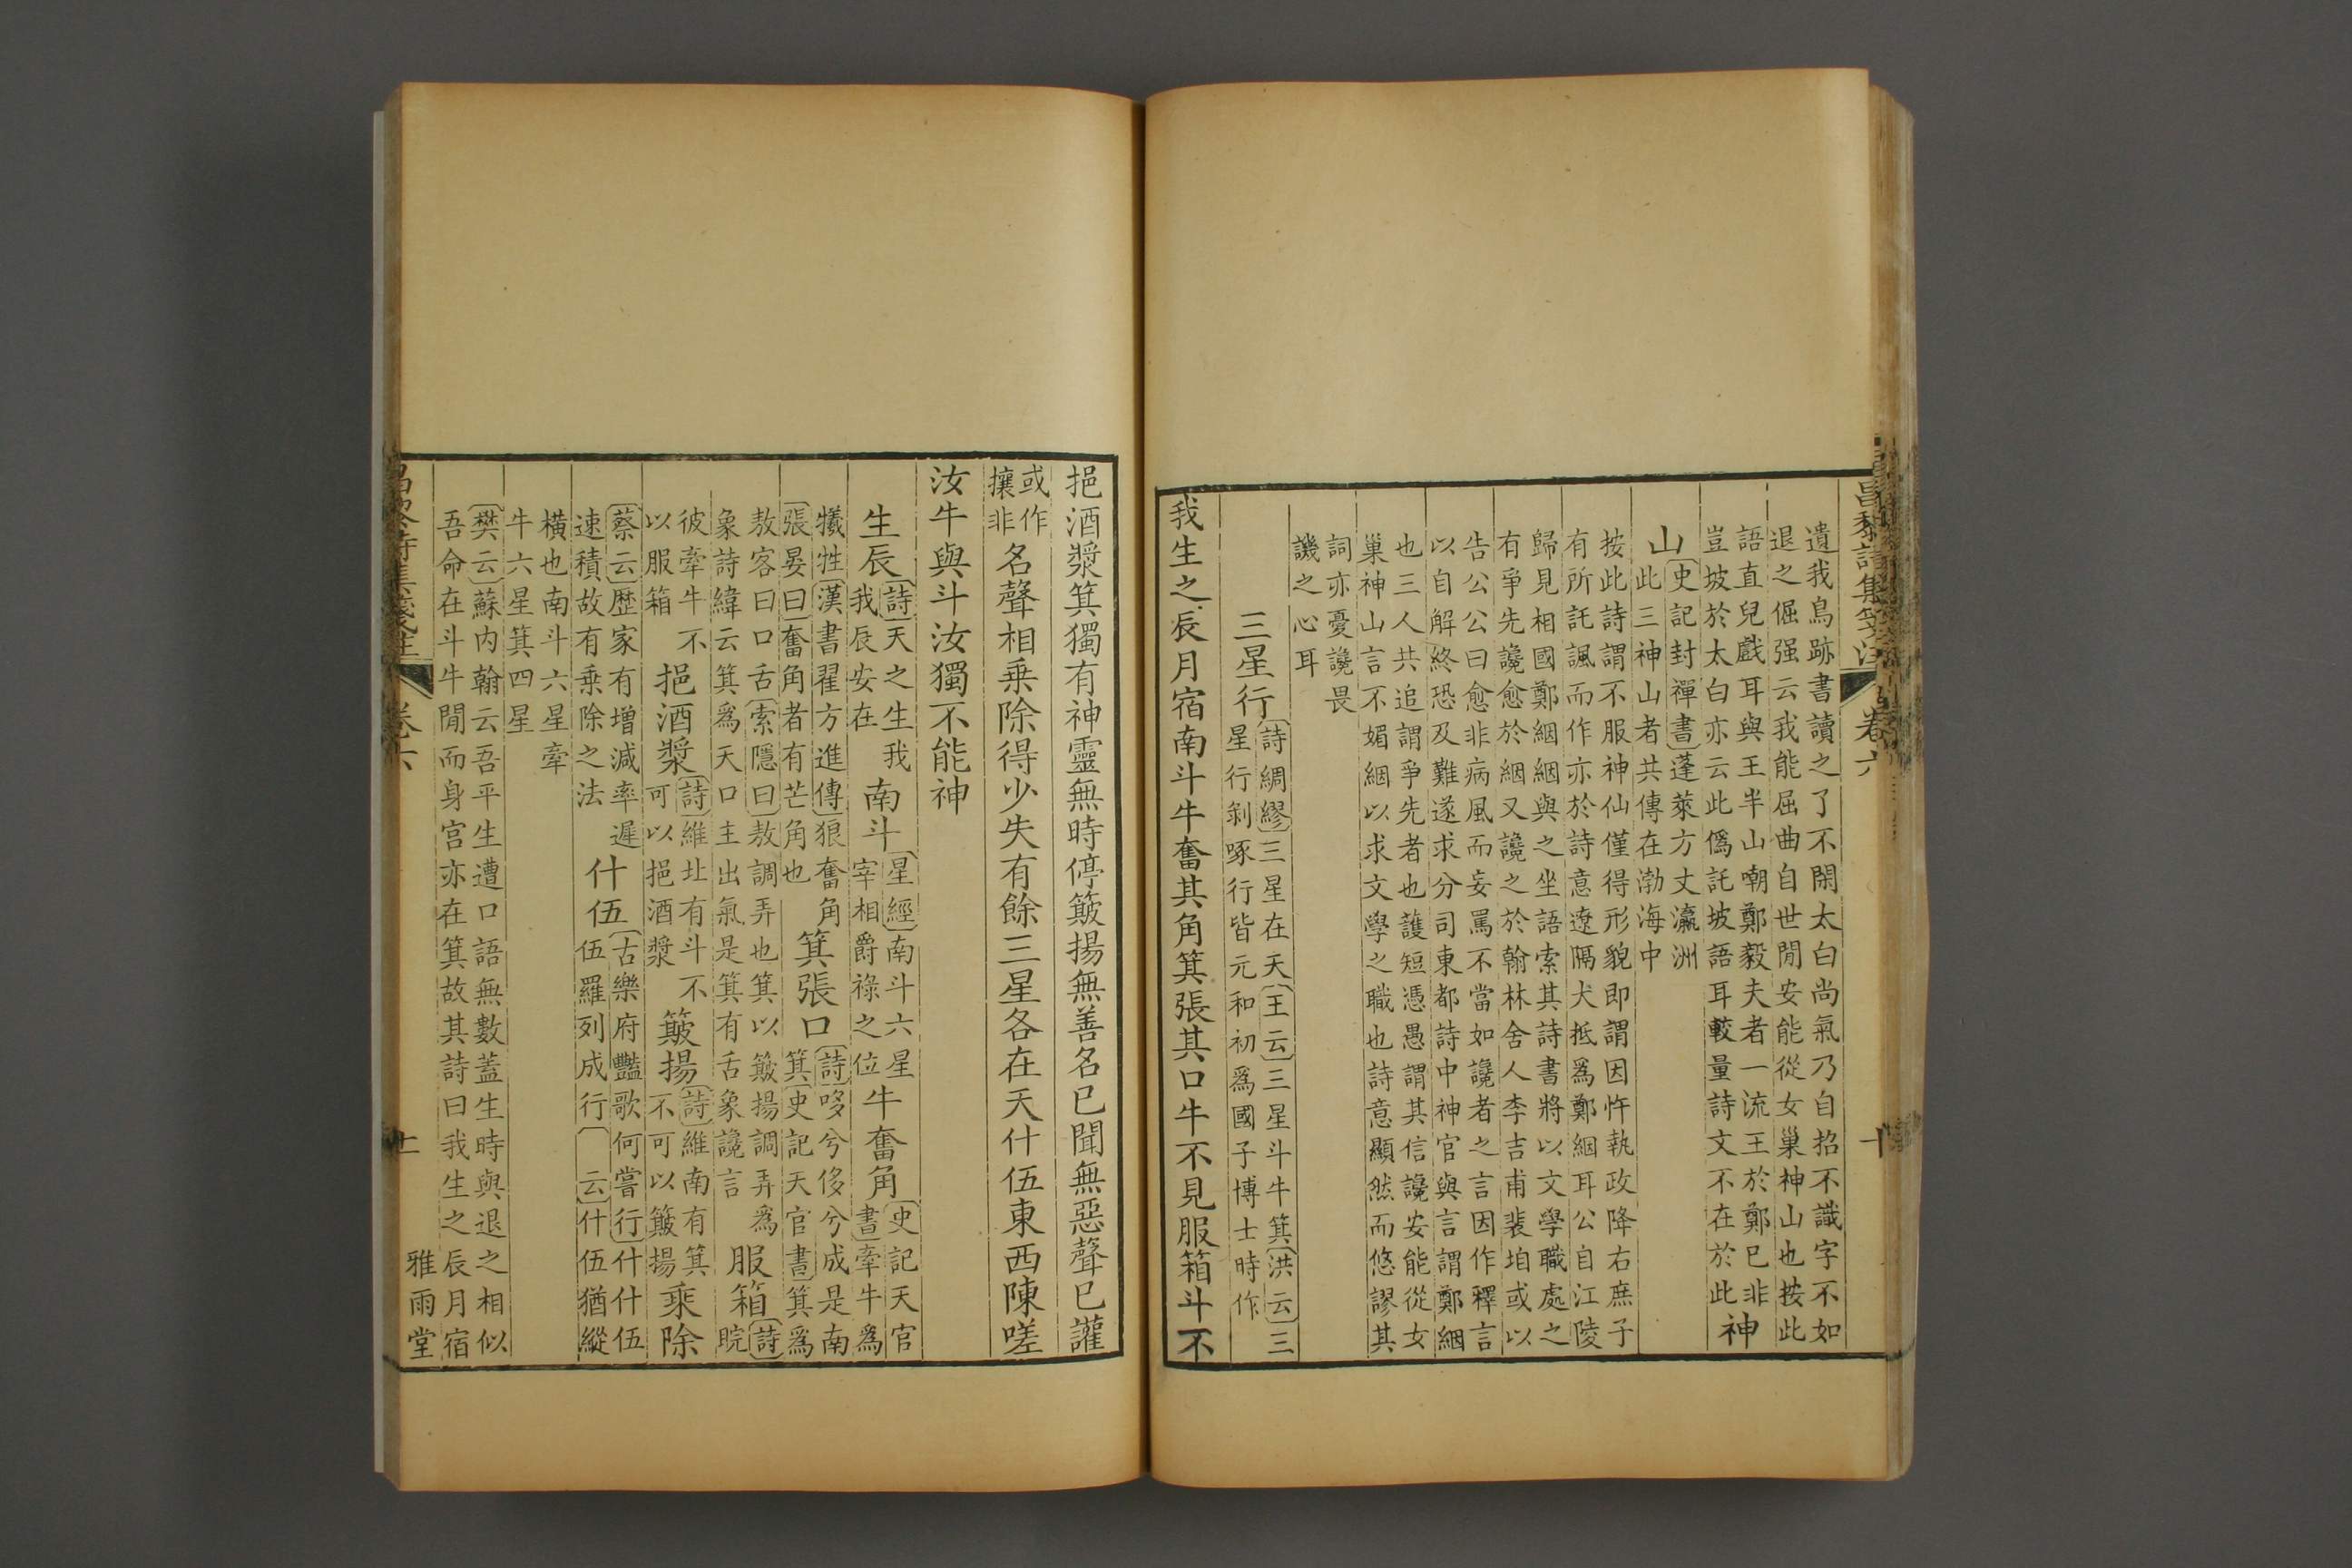 昌黎詩集箋注 卷六 十
遺我鳥跡書讀之了不閑太白尚氣乃自招不識字不如
退之倔强云我能屈曲自世閒安能從女巢神山也按此
語直兒戲耳與王半山嘲鄭毅夫者一流王於鄭已非
豈坡於太白亦云此僞託坡語耳較量詩文不在於此
神
山
史記封禪書蓬萊方丈瀛洲
此三神山者共傳在渤海中
按此詩謂不服神仙僅得形貌即謂因忤執政降右庶子
有所託諷而作亦於詩意遼隔犬抵爲鄭絪耳公自江陵
歸見相國鄭絪絪與之坐語索其詩書將以文學職處之
有爭先讒愈於絪又讒之於翰林舍人李吉甫裴垍或以
告公公曰愈非病風而妄罵不當如讒者之言因作釋言
以自解終恐及難遂求分司東都詩中神官與言謂鄭絪
也三人共追謂爭先者也護短憑愚謂其信讒安能從女
巢神山言不媚絪以求文學之職也詩意顯然而悠謬其
詞亦憂讒畏
譏之心耳
三星行
詩綢繆三星在天王云三星斗牛箕洪云三
星行剝啄行皆元和初爲國子博士時作
我生之辰月宿南斗牛奮其角箕張其口牛不見服箱斗不
挹酒漿箕獨有神靈無時停簸揚無善名已聞無惡聲已讙
或作
攘非
名聲相乘除得少失有餘三星各在天什伍東西陳嗟
汝牛與斗汝獨不能神
生辰
詩天之生我
我辰安在
南斗
星經南斗六星
宰相爵祿之位
牛奮角
史記天官
書牽牛爲
犧牲漢書翟方進傳狼奮角
張晏曰奮角者有芒角也
箕張口
詩哆兮侈兮成是南
箕史記天官書箕爲
敖客曰口舌索隱曰敖調弄也箕以簸揚調弄爲
象詩緯云箕爲天口主出氣是箕有舌象讒言
服箱
詩
睆
彼牽牛不
以服箱
挹酒漿
詩維北有斗不
可以挹酒漿
簸揚
詩維南有箕
不可以簸揚
乘除
蔡云歴家有增減率遲
速積故有乗除之法
什伍
古樂府豔歌何嘗行什什伍
伍羅列成行一云什伍猶縱
横也南斗六星牽
牛六星箕四星
樊云蘇内翰云吾平生遭口語無數蓋生時與退之相似
吾命在斗牛閒而身宫亦在箕故其詩曰我生之辰月宿
昌黎詩集箋注 卷六 十一 雅雨堂